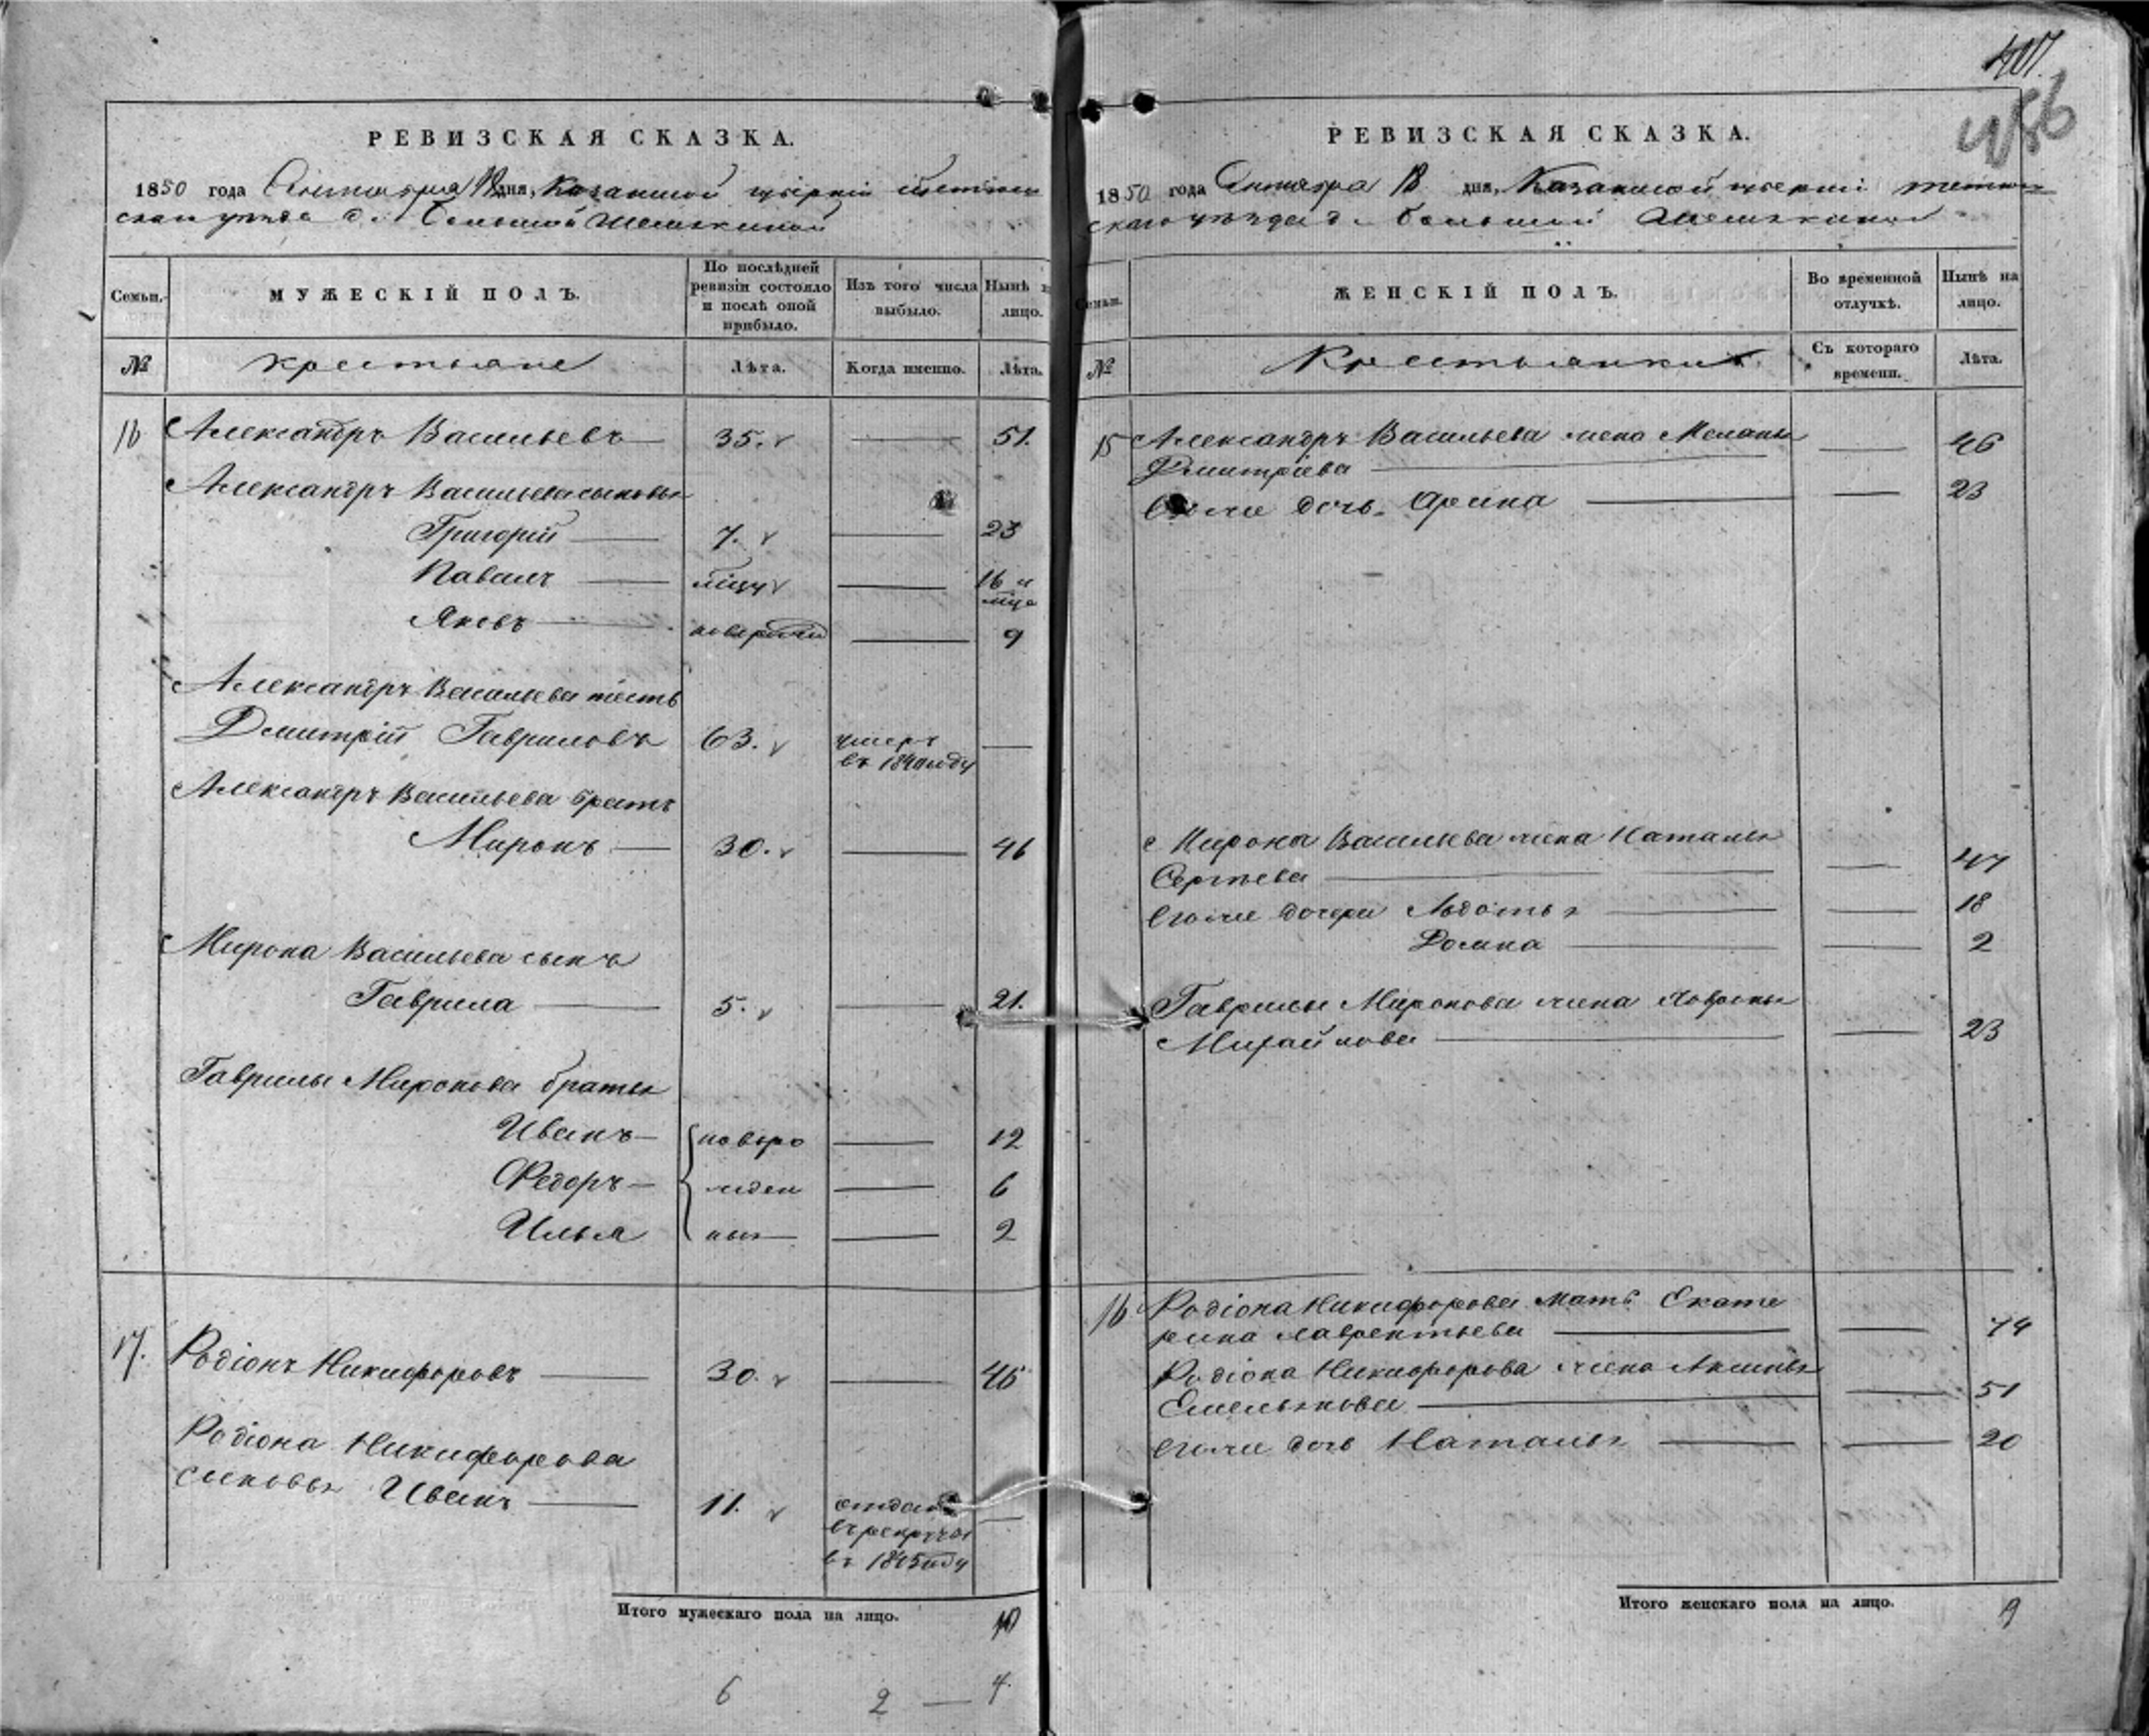 407.
456
РЕВИЗСКАЯ СКАЗКА.
1850 года Октября 18 дня, Казанской губерніи тетюш
скаго уѣзда д. Большой Шемякиной
Семьи.
МУЖЕСКІЙ ПОЛЪ.
По послѣдней ревизіи состояло и послѣ оной прибыло.
Изъ того числа выбыло.
Нынѣ на лицо.
№
крестьяне
Лѣта.
Когда именно.
Лѣта.
16 Александръ Васильевъ 35. 51.
Александръ Васильева сыновья
Григорій 7. 23
Павелъ мѣцу 16 и мца
Яковъ новорожден 9
Александръ Васильева тесть
Дмитрій Гавриловъ 63. умеръ
въ 1840 году
Александръ Васильева братъ
Миронъ 30. 46
Мирона Васильева сынъ
Гаврила 5. 21.
Гаврилы Миронова братья
Иванъ новоро 12
Федоръ жден 6
Илья ныя 2
17. Родіонъ Никифоровъ 30. 46
Родіона Никифорова
сыновья Иванъ 11. отданъ
въ рекруты
въ 1845 году
Итого мужескаго пола на лицо. 10
6 2 — 4
РЕВИЗСКАЯ СКАЗКА.
1850 года Октября 18 дня, Казанской губерніи тетюш
скаго уѣзда д. большой Шемякиной
Семьи.
ЖЕНСКІЙ ПОЛЪ.
Во временной отлучкѣ.
Нынѣ на лицо.
№
Крестьянки
Съ котораго времени.
Лѣта.
15 Александръ Васильева жена Меланья
Дмитріева 46
Его же дочь Арина 23
Мирона Васильева жена Наталья
Сергѣева 47
Его же дочери Авдотья 18
Домна 2
Гаврилы Миронова жена Хавронья
Михайлова 23
16 Родіона Никифорова мать Екате
рина Лаврентьева 74
Родіона Никифорова жена Аксинья
Емельянова 51
Его же дочь Наталья 20
Итого женскаго пола на лицо. 9